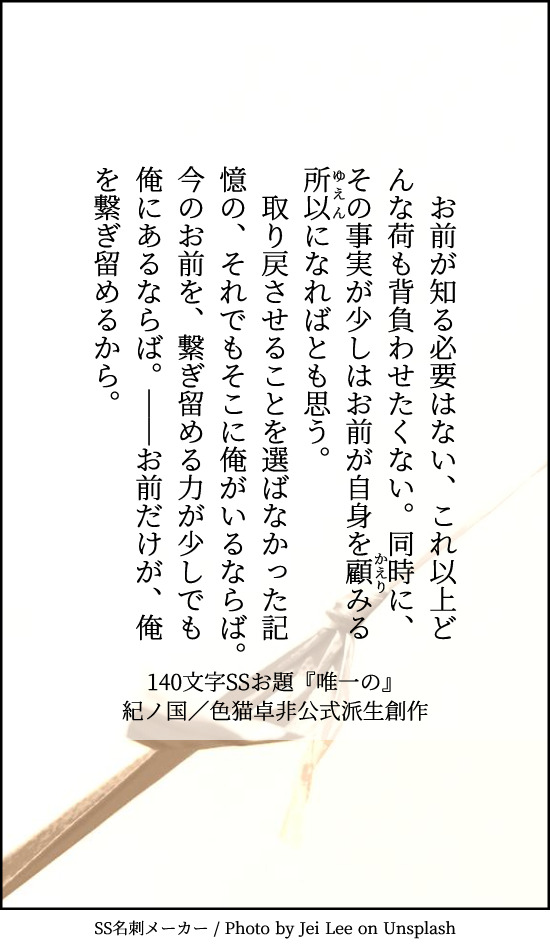 お前が知る必要はない、これ以上ど
んな荷も背負わせたくない。同時に、
その事実が少しはお前が自身を顧みる
かえり
所以になればとも思う。
ゆえん
　取り戻させることを選ばなかった記
憶の、それでもそこに俺がいるならば。
今のお前を、繋ぎ留める力が少しでも
俺にあるならば。――お前だけが、俺
を繋ぎ留めるから。
140文字SSお題『唯一の』
紀ノ国／色猫卓非公式派生創作
SS名刺メーカー / Photo by Jei Lee on Unsplash